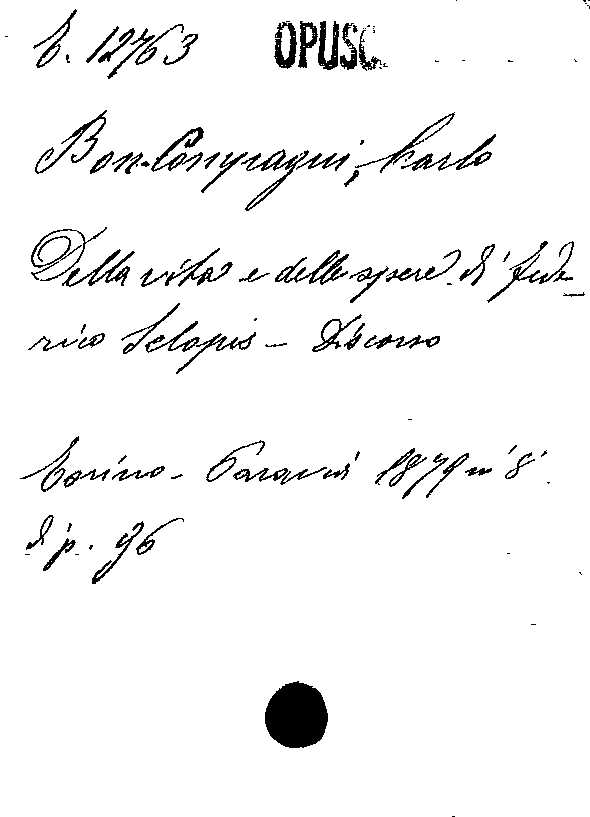 E. 12763 OPUSC.
Bon-Compagni, Carlo
Della vita e delle opere di Fede_
rico Sclopis - Discorso
Torino - Paravia 1879 in 8°
di p. 96